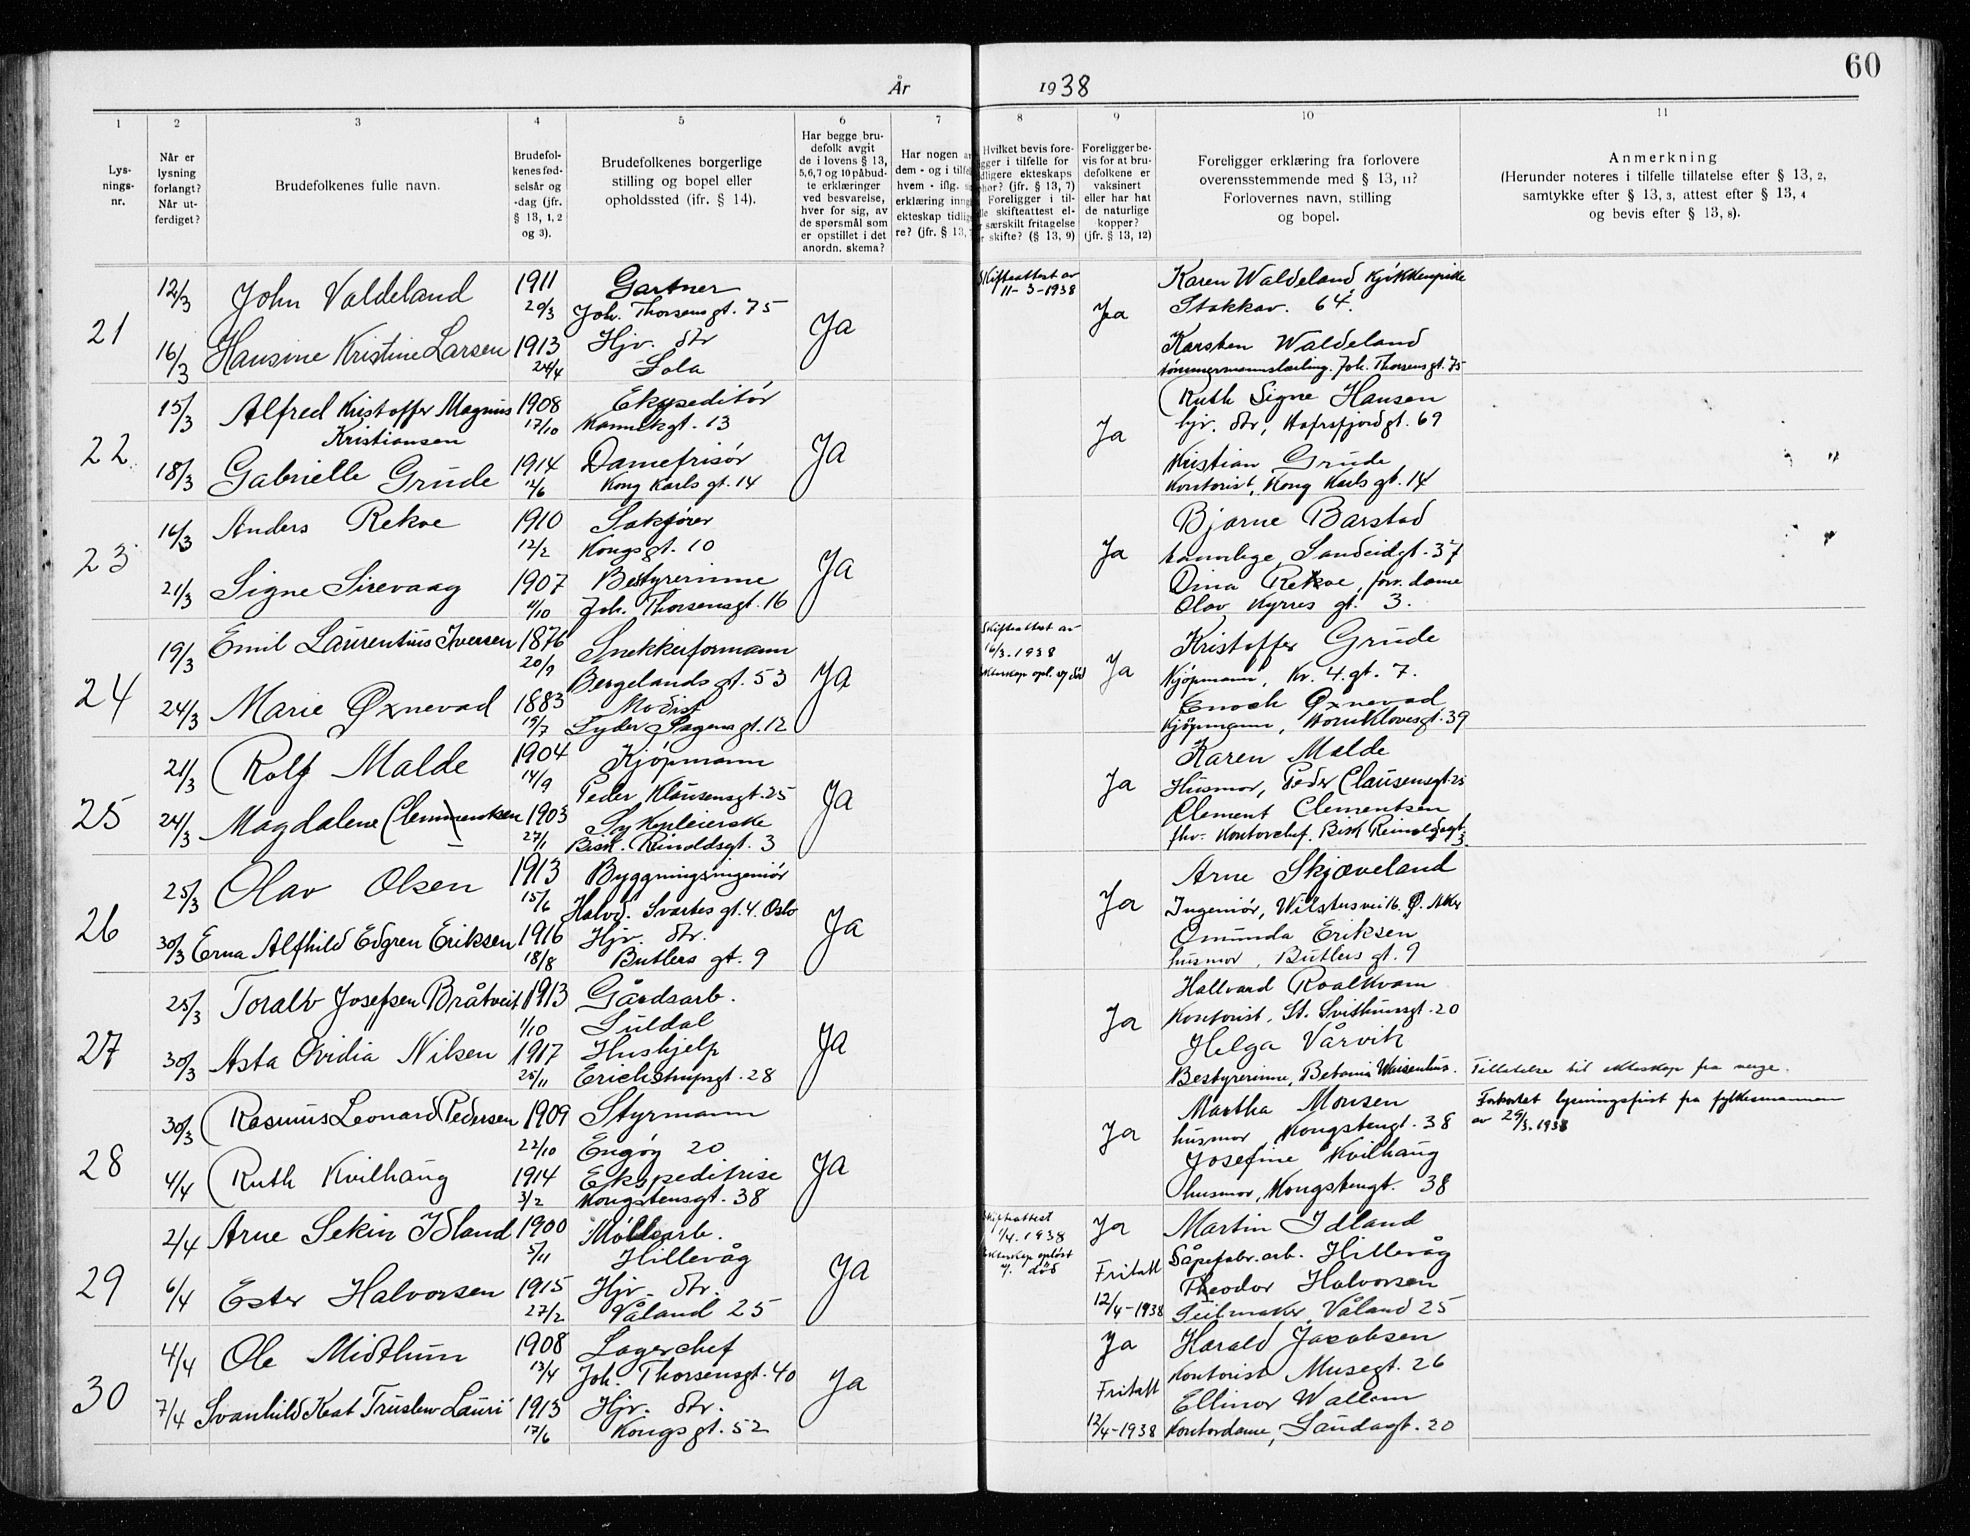 60
År 1938
1 2 3 4 5 6 7 8 9 10 11
Lys-
nings-
nr.
Når er
lysning
forlangt?
Når ut-
ferdiget?
Brudefolkenes fulle navn.
Brudefol-
kenes fød-
selsår og
-dag (jfr.
§ 13, 1, 2
og 3).
Brudefolkenes borgerlige
stilling og bopel eller
opholdssted (jfr. § 14).
Har begge bru-
defolk avgit
de i lovens § 13,
5, 6, 7 og 10 påbud-
te erklæringer
ved besvarelse,
hver for sig, av
de spørsmål som
er opstillet i det
anordn. skema?
Har nogen
dem - og i tilfel
hvem - iflg.
erklæring inng
ekteskap tidlig
re? (jfr. § 13,
Hvilket bevis fore-
gger i tilfelle for
dligere ekteskaps
phør? (jfr. § 13, 7)
Foreligger i til-
lle skifteattest el-
særskilt fritagelse
skifte? (§ 13, 9)
Foreligger be-
vis for at bru-
defolkene er
vaksinert
eller har hat
de naturlige
kopper?
(jfr. § 13, 12)
Foreligger erklæring fra forlovere
overensstemmende med § 13, 11?
Forlovernes navn, stilling
og bopel.
Anmerkning
(Herunder noteres i tilfelle tillatelse efter § 13, 2,
samtykke efter § 13, 3, attest efter § 13, 4
og bevis efter § 13, 8).
21
12/3 John Valdeland 1911 Gartner
20/3 Joh. Thorsensgt. 75
16/3 Hansine Kristine Larsen 1913 Hjv. dtr
24/4 Sola
Ja
Skifteattest av
11-3-1938
Ja
Karen Waldeland kjøkkenpike
Stokkav. 64.
Karsten Waldeland
tømmermannslærling. Joh. Thorsensgt. 75
22
15/3 Alfred Kristoffer Magnus 1908 Ekspeditør
Kristiansen 17/10 Kannikgt. 13
18/3 Gabrielle Grude 1914 Damefrisør
12/6 Kong Karls gt. 14
Ja
Ja
Ruth Signe Hansen
hjv. dtr, Hafrsfjordgt. 69
Kristian Grude
Kontorist, Kong Karls gt. 14
23
16/3 Anders Rekve 1910 Sakfører
12/2 Kongsgt. 10
21/3 Signe Sirevaag 1907 Bestyrerinne
11/10 Joh. Thorsensgt. 16
Ja
Ja
Bjarne Barstad
tannlege, Sandeidgt. 37
Dina Rekve, forr. dame
Olav Kyrres gt. 3.
24
19/3 Emil Laurentius Iversen 1876 Snekkerformann
20/9 Bergelands gt. 53
24/3 Marie Øxnevad 1883 Modist
15/7 Lyder Sagens gt. 12
Ja
Skifteattest av
16/3-1938
Ekteskap opl. v/ død
Ja
Kristoffer Grude
Kjøpmann, Kr. 4. gt. 7.
Enoch Øxnevad
Kjøpmann, Hornklovesgt. 39
25
21/3 Rolf Malde 1904 Kjøpmann
14/9 Peder Klausensgt. 25
24/3 Magdalene Clementsen 1903 Sykepleierske
27/1 Bisk. Reinoldsgt. 3
Ja
Ja
Karen Malde
Husmor, Peder Clausensgt. 25
Clement Clementsen
fhv. Kontorchef. Bisk Reinoldsgt.
3.
26
25/3 Olav Olsen 1913 Byggningsingeniør
15/6 Halvd. Svartes gt. 4. Oslo
30/3 Erna Alfhild Edgren Eriksen 1916 Hjv. dtr.
18/8 Butlers gt. 9
Ja
Ja
Arne Skjæveland
Ingeniør, Wilstersvei 16. Ø. Aker
Omunda Eriksen
husmor, Butlers gt. 9
27
25/3 Toralv Josefsen Bråtveit 1913 Gårdsarb.
1/10 Suldal
30/3 Asta Ovidia Nilsen 1917 Hushjelp
25/11 Erichstrupsgt. 28
Ja
Ja
Hallvard Roalkvam
Kontorist, St. Svithunsgt. 20
Helga Vårvik
Bestyrerinne, Betania Waisenhus.
Tillatelse til ekteskap fra verge.
28
30/3 Rasmus Leonard Pedersen 1909 Styrmann
22/10 Engøy 20
4/4 Ruth Kvilhaug 1914 Ekspeditrise
3/2 Kongstensgt. 38
Ja
Ja
Martha Monsen
husmor, Kongstengt. 38
Josefine Kvilhaug
husmor, Kongstengt. 38
Forkortet lysningsfrist fra fylkesmannen
av 29/3.1938
29
2/4 Arne Sekin Idland 1900 Møllearb.
5/11 Hillevåg
6/4 Ester Halvorsen 1915 Hjv. dtr.
27/2 Våland 25
Ja
Skifteattest
1/4. 1938
Ekteskap opløst
v. død
Ja
Fritatt
12/4-1938
Martin Idland
Såpefabr. arb. Hillevåg
Theodor Halvorsen
Seilmaker, Våland 25
30
4/4 Ole Midthun 1908 Lagerchef
13/4 Joh. Thorsensgt. 40
7/4 Svanhild Keat Truslew Lauri 1913 Hjv. dtr.
17/6 Kongsgt. 52
Ja
Ja
Fritatt
12/4-1938
Harald Jacobsen
Kontorist Musegt. 26
Ellinor Wallem
Kontordame, Saudagt. 20